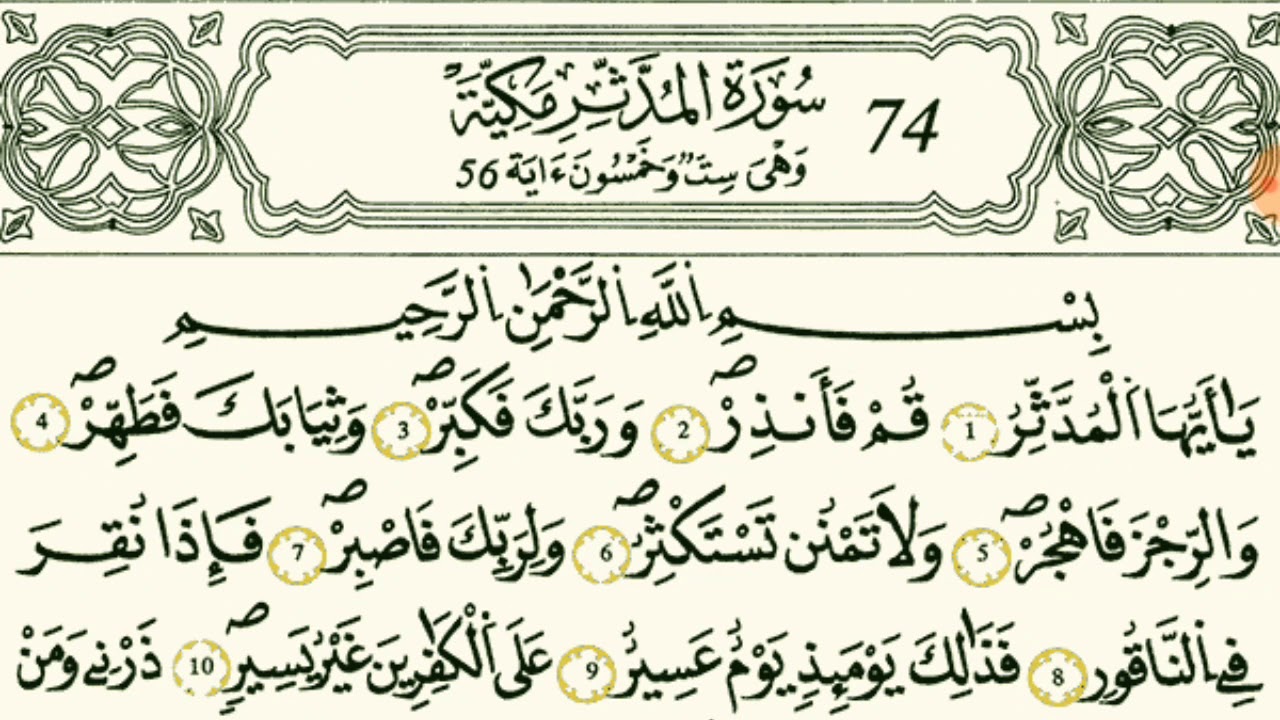 سُورَةُ الْمُدَّثِّرِ مَكِّيَّةٌ 74
وَهْيَ سِتٌّ وَخَمْسُونَ ءَايَةً 56
بِسْمِ اِ۬للَّهِ اِ۬لرَّحْمَٰنِ اِ۬لرَّحِيمِ
يَٰأَيُّهَا اَ۬لْمُدَّثِّرُ 1 قُمْ فَأَنذِرْ 2 وَرَبَّكَ فَكَبِّرْ 3 وَثِيَابَكَ فَطَهِّرْ 4
وَالرِّجْزَ فَاهْجُرْ 5 وَلَا تَمْنُن تَسْتَكْثِرُ 6 وَلِرَبِّكَ فَاصْبِرْ 7 فَإِذَا نُقِرَ
فِے اِ۬لنَّاقُورِ 8 فَذَٰلِكَ يَوْمَئِذٍ يَوْمٌ عَسِيرٌ 9 عَلَى اَ۬لْكَٰفِرِينَ غَيْرُ يَسِيرٍ 10 ذَرْنِے وَمَنْ